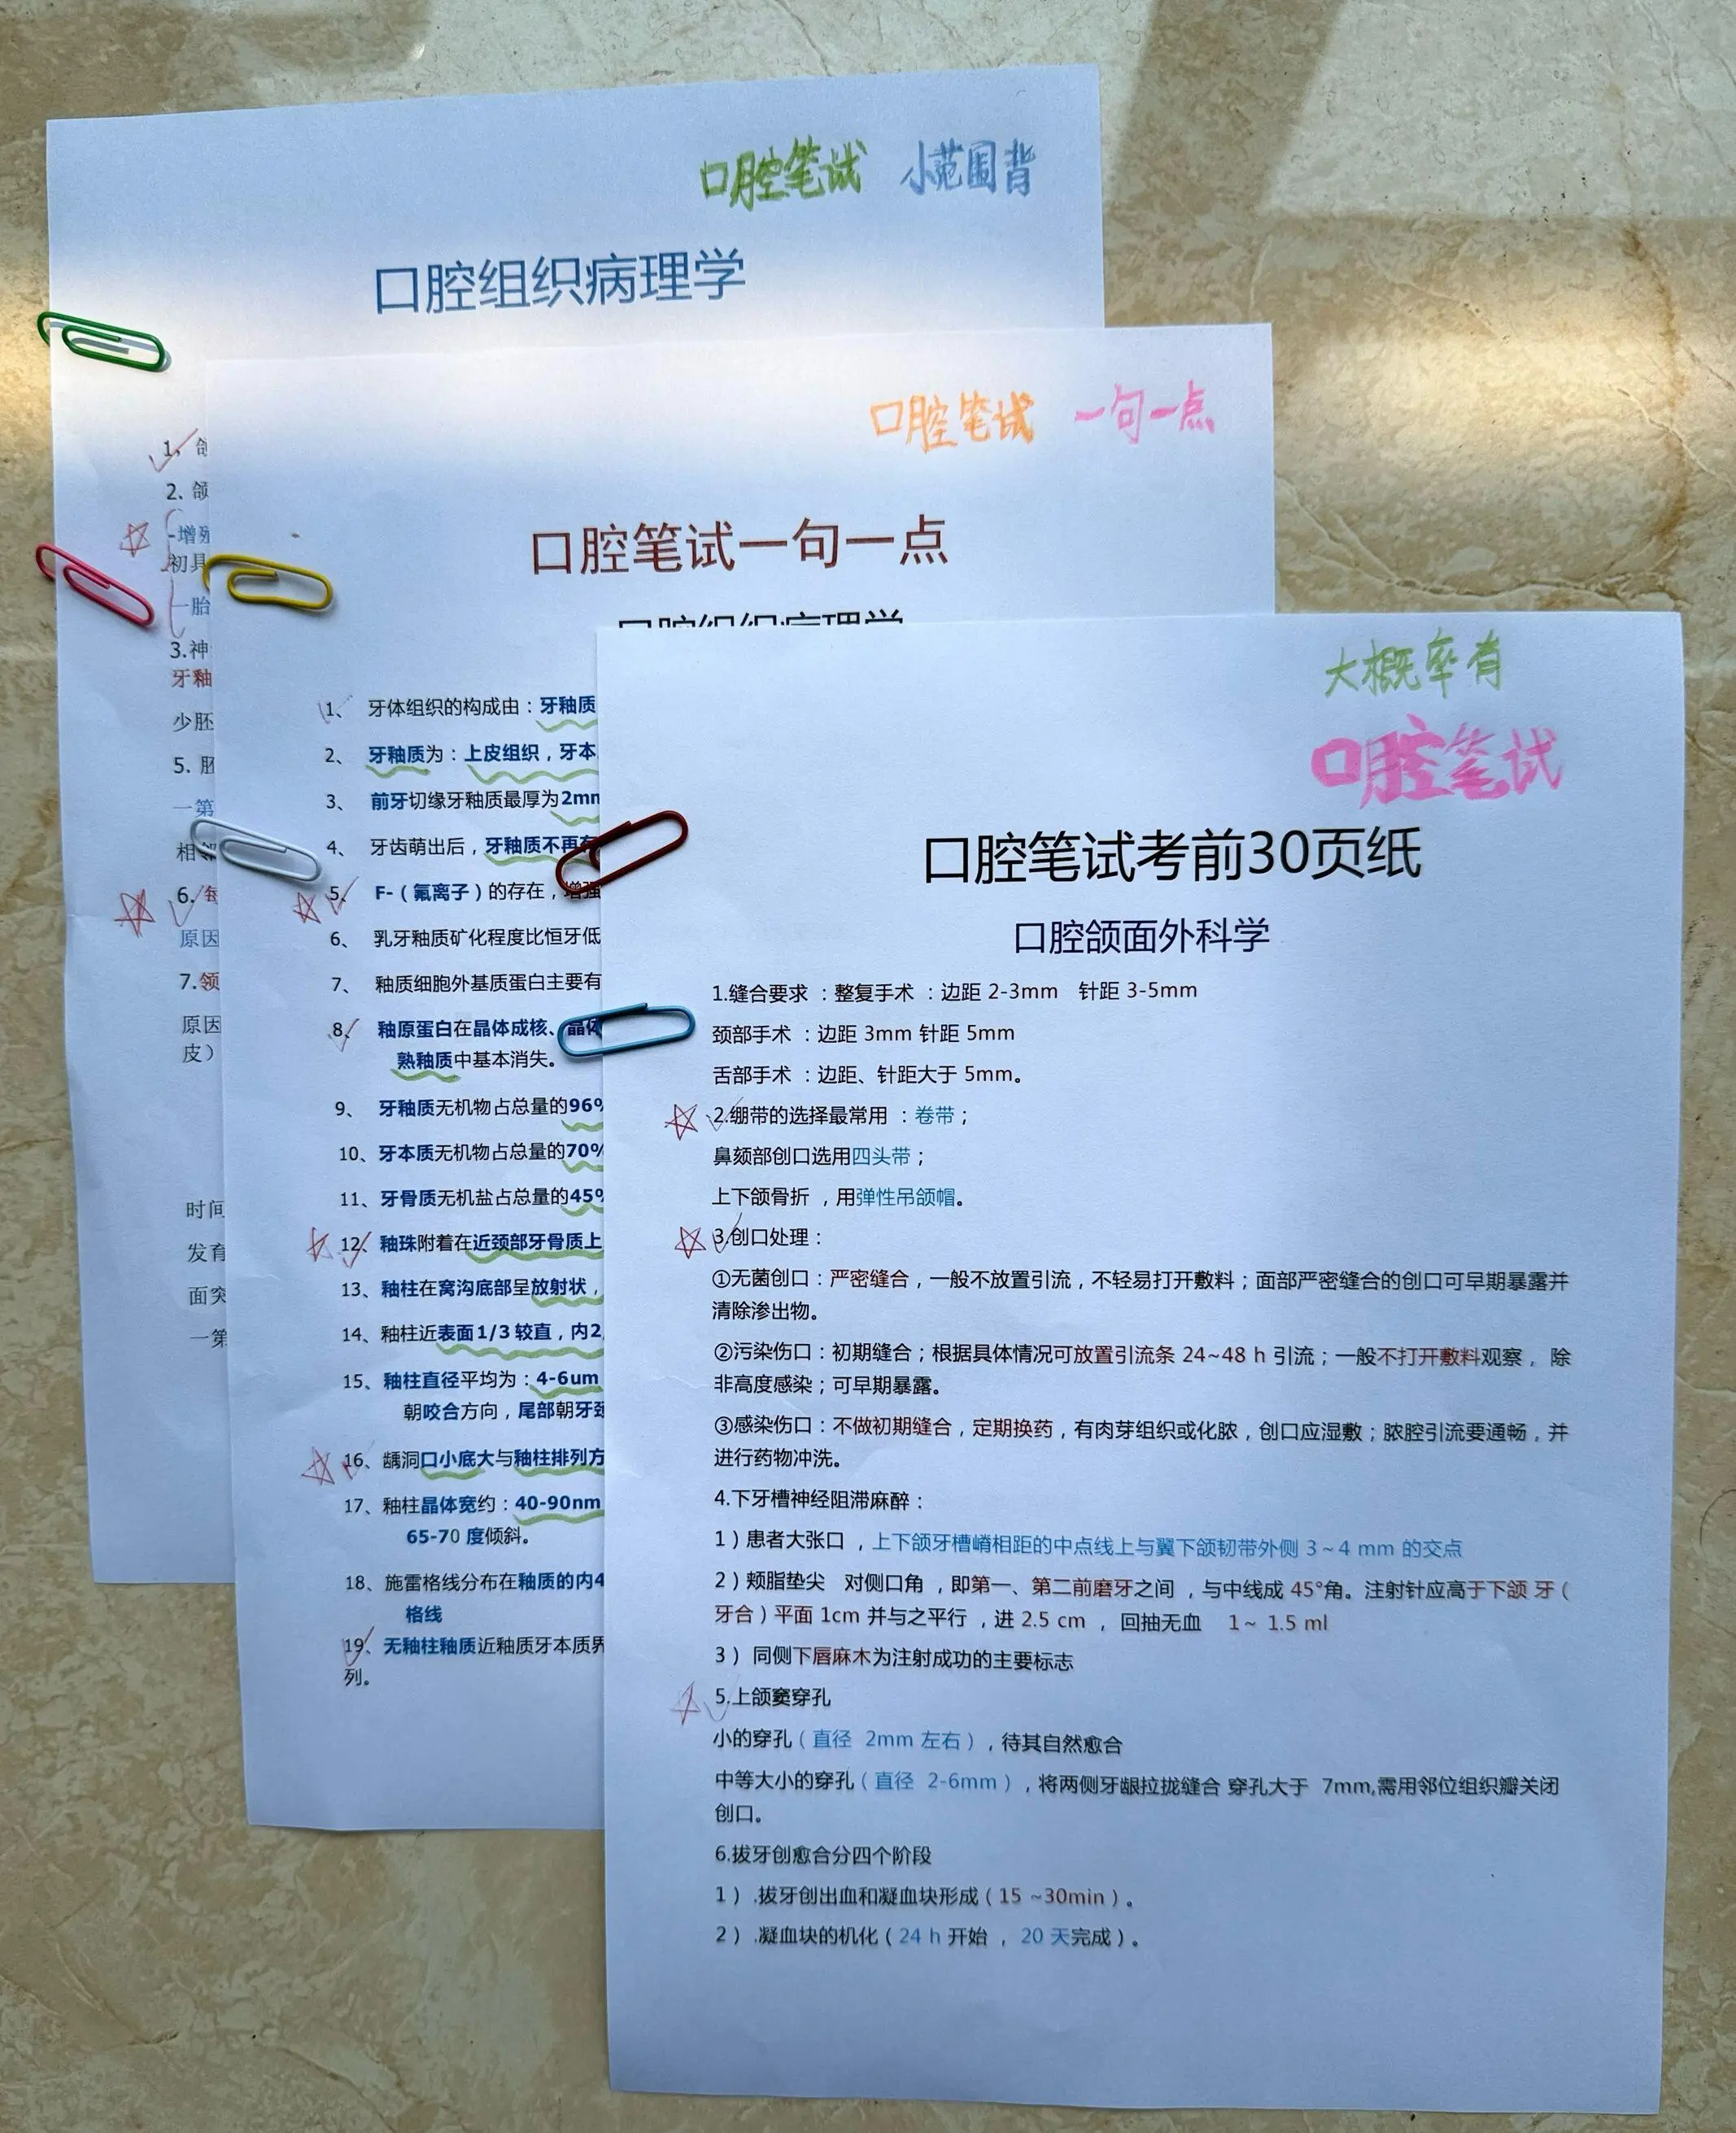 口腔笔试 小范围背
口腔组织病理学
1、
2、颌
-增殖
初具
一胎
3.神
牙釉
少胚
5. 胚
一第
相邻
6.
原因
7.颌
原因
皮）
时间
发育
面突
一第
口腔笔试 一句一点
口腔笔试一句一点
口腔组织病理学
1、 牙体组织的构成由：牙釉质
2、 牙釉质为：上皮组织，牙本
3、 前牙切缘牙釉质最厚为2mm
4、 牙齿萌出后，牙釉质不再有
5、 F-（氟离子）的存在，增强
6、 乳牙釉质矿化程度比恒牙低
7、 釉质细胞外基质蛋白主要有
8、 釉原蛋白在晶体成核、晶体
熟釉质中基本消失。
9、 牙釉质无机物占总量的96%
10、牙本质无机物占总量的70%
11、牙骨质无机盐占总量的45%
12、釉珠附着在近颈部牙骨质上
13、釉柱在窝沟底部呈放射状，
14、釉柱近表面1/3 较直，内2
15、釉柱直径平均为：4-6um
朝咬合方向，尾部朝牙颈
16、龋洞口小底大与釉柱排列方
17、釉柱晶体宽约：40-90nm
65-70 度倾斜。
18、施雷格线分布在釉质的内4
格线
19、无釉柱釉质近釉质牙本质界
列。
大概率有
口腔笔试
口腔笔试考前30页纸
口腔颌面外科学
1.缝合要求 ：整复手术 ：边距 2-3mm 针距 3-5mm
颈部手术 ：边距 3mm 针距 5mm
舌部手术 ：边距、针距大于 5mm。
2.绷带的选择最常用 ：卷带；
鼻颏部创口选用四头带；
上下颌骨折 ，用弹性吊颌帽。
3.创口处理：
①无菌创口：严密缝合，一般不放置引流，不轻易打开敷料；面部严密缝合的创口可早期暴露并
清除渗出物。
②污染伤口：初期缝合；根据具体情况可放置引流条 24~48 h 引流；一般不打开敷料观察， 除
非高度感染；可早期暴露。
③感染伤口：不做初期缝合，定期换药，有肉芽组织或化脓，创口应湿敷；脓腔引流要通畅，并
进行药物冲洗。
4.下牙槽神经阻滞麻醉：
1）患者大张口 ，上下颌牙槽嵴相距的中点线上与翼下颌韧带外侧 3~4 mm 的交点
2）颊脂垫尖 对侧口角 ，即第一、第二前磨牙之间 ，与中线成 45°角。注射针应高于下颌 牙（
牙合）平面 1cm 并与之平行 ，进 2.5 cm ， 回抽无血 1~ 1.5 ml
3） 同侧下唇麻木为注射成功的主要标志
5.上颌窦穿孔
小的穿孔（直径 2mm 左右），待其自然愈合
中等大小的穿孔（直径 2-6mm），将两侧牙龈拉拢缝合 穿孔大于 7mm,需用邻位组织瓣关闭
创口。
6.拔牙创愈合分四个阶段
1） .拔牙创出血和凝血块形成（15 ~30min）。
2） .凝血块的机化（24 h 开始 ， 20 天完成）。